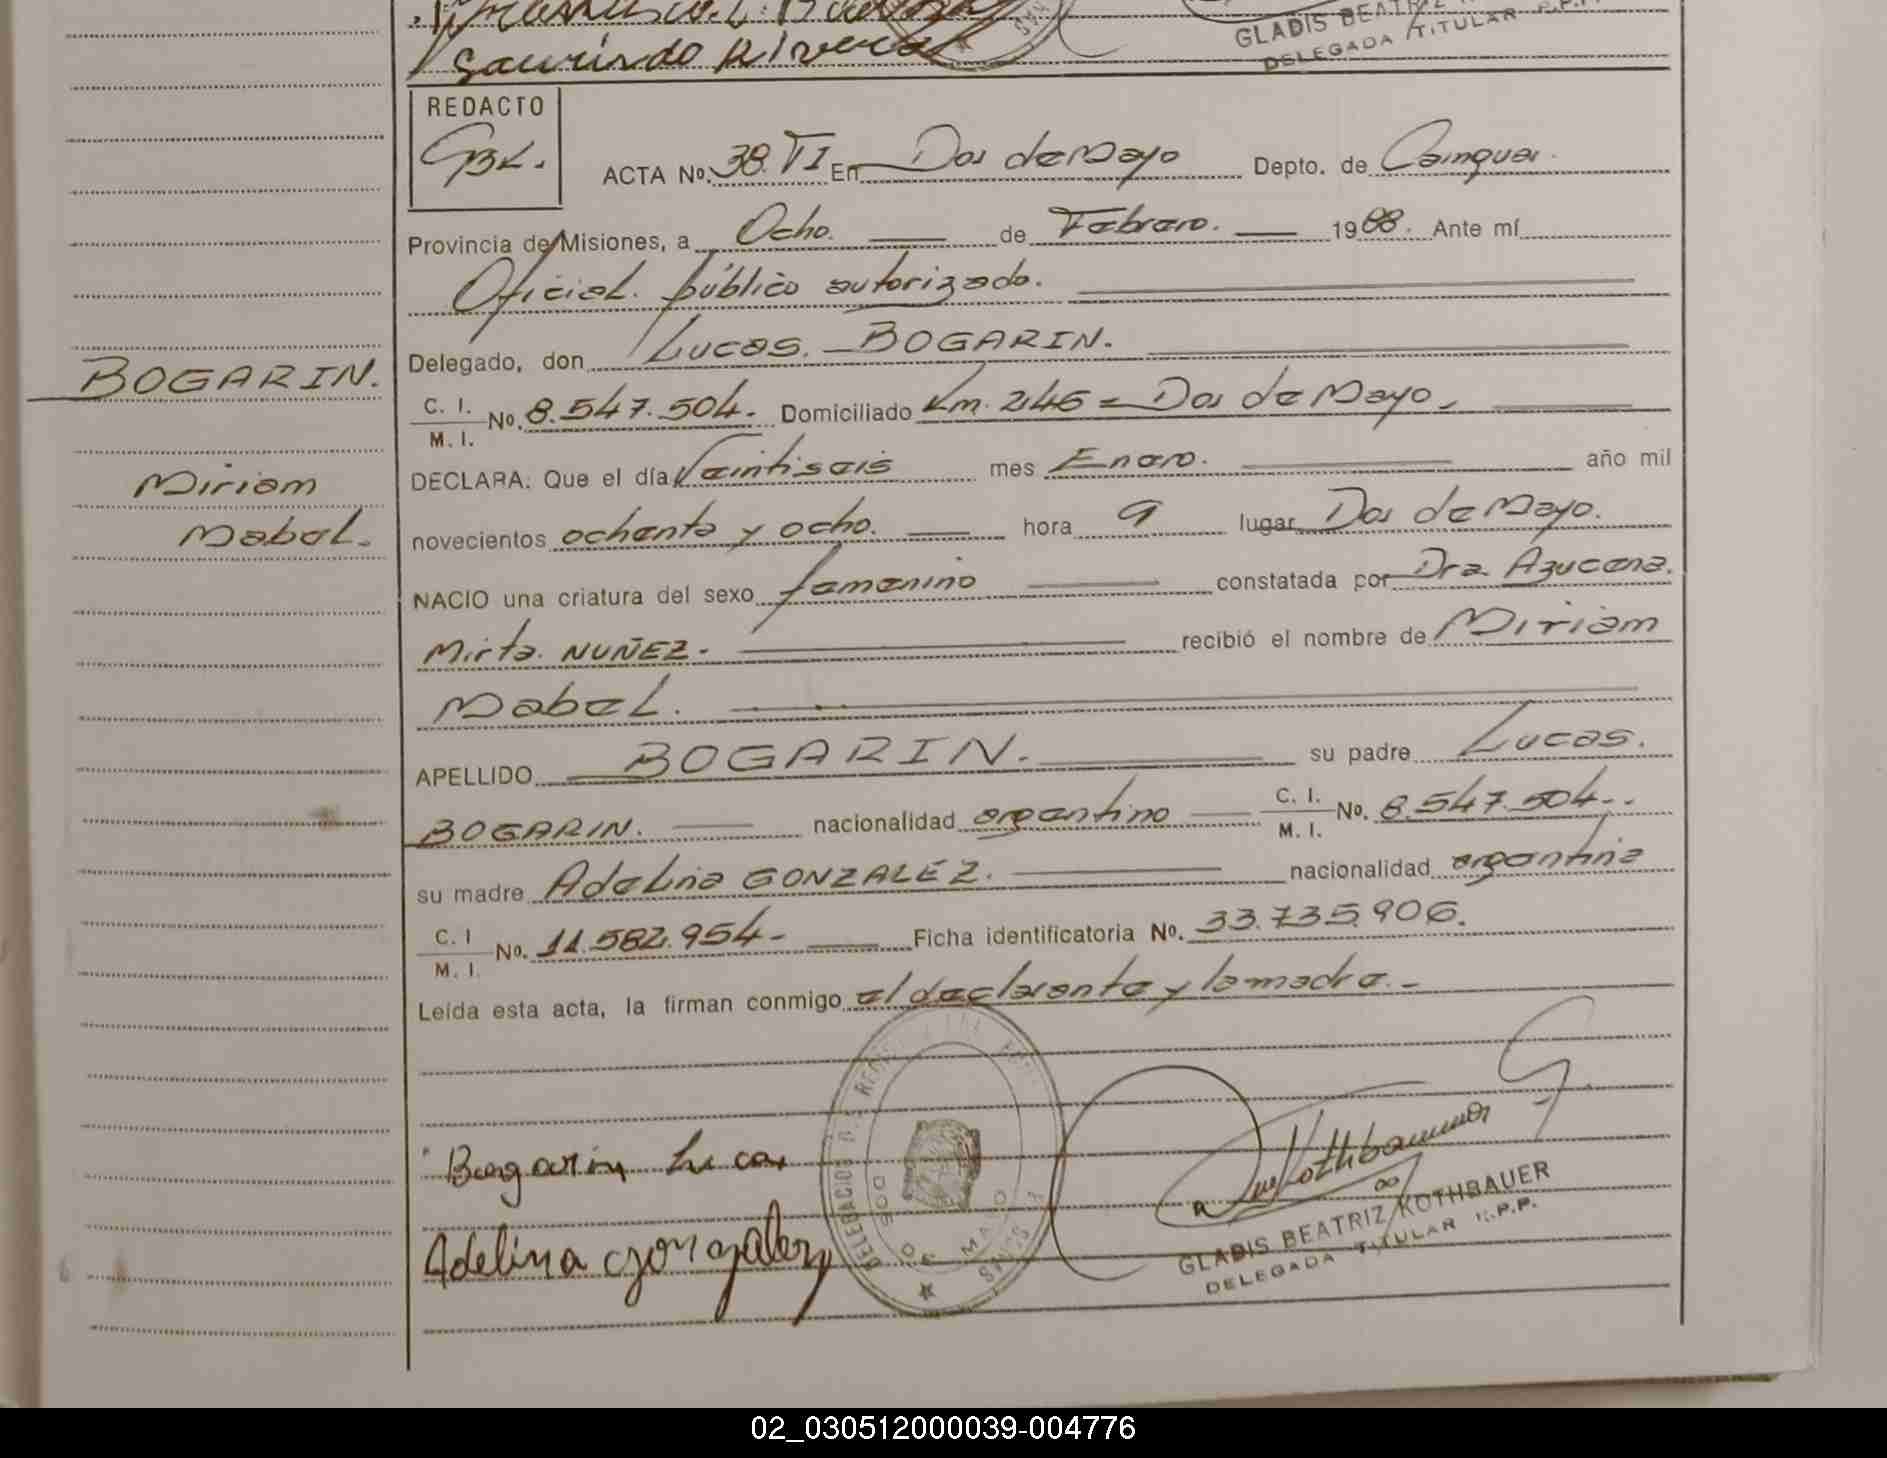 Gaurindo Rivero
GLADIS BEATRIZ
DELEGADA TITULAR R.P.P.
REDACTO
GBK.
ACTA No. 38. TI En Dos de Mayo Depto. de Cainguas.
Provincia de Misiones, a Ocho. de Febrero. 1988. Ante mí
Oficial. público autorizado.
Delegado, don Lucas. BOGARIN.
C. I. / M. I. No. 8.547.504. Domiciliado Km. 246 = Dos de Mayo.
DECLARA: Que el día Veintiseis mes Enero. año mil
novecientos ochenta y ocho. hora 9 lugar Dos de Mayo.
NACIO una criatura del sexo femenino constatada por Dra. Azucena.
Mirta. NUÑEZ. recibió el nombre de Miriam
Mabel.
APELLIDO BOGARIN. su padre Lucas.
BOGARIN. nacionalidad argentino C. I. / M. I. No. 8.547.504.
su madre Adelina GONZALEZ. nacionalidad argentina
C. I / M. I. No. 11.582.954- Ficha identificatoria No. 33.735.906.
Leída esta acta, la firman conmigo el declarante y la madre.-
BOGARIN.
Miriam
Mabel.
Bogarin Lucas
Adelina Gonzalez
DOS DE MAYO
Kothbauer
GLADIS BEATRIZ KOTHBAUER
DELEGADA TITULAR R.P.P.
02_030512000039-004776